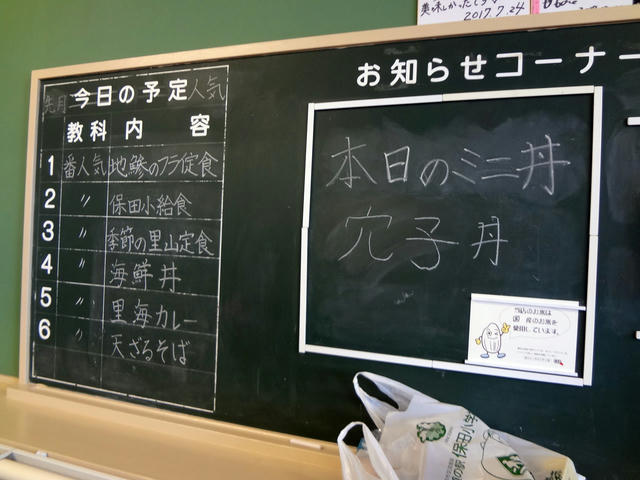 美味しかったです
2017.7.24
お知らせコーナー
先月 今日の予定 人気
教科 内 容
1 番人気 地鯵のフライ定食
2 〃 保田小給食
3 〃 季節の里山定食
4 〃 海鮮丼
5 〃 里海カレー
6 〃 天ざるそば
本日のミニ丼
穴子丼
当店のお米は
国産のお米を
使用しています。
保田小学